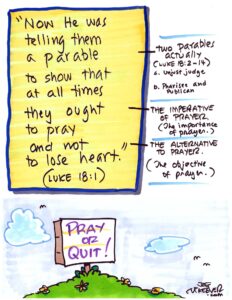 "Now He was
telling them
a parable
to show that
at all times
they ought
to pray
and not
to lose heart."
(LUKE 18:1)
two parables
actually
(LUKE 18:2-14)
a. Unjust judge
b. Pharisee and
Publican
THE IMPERATIVE
OF PRAYER.
(The importance
of prayer.)
THE ALTERNATIVE
TO PRAYER.
(The objective
of prayer.)
PRAY
OR
QUIT!